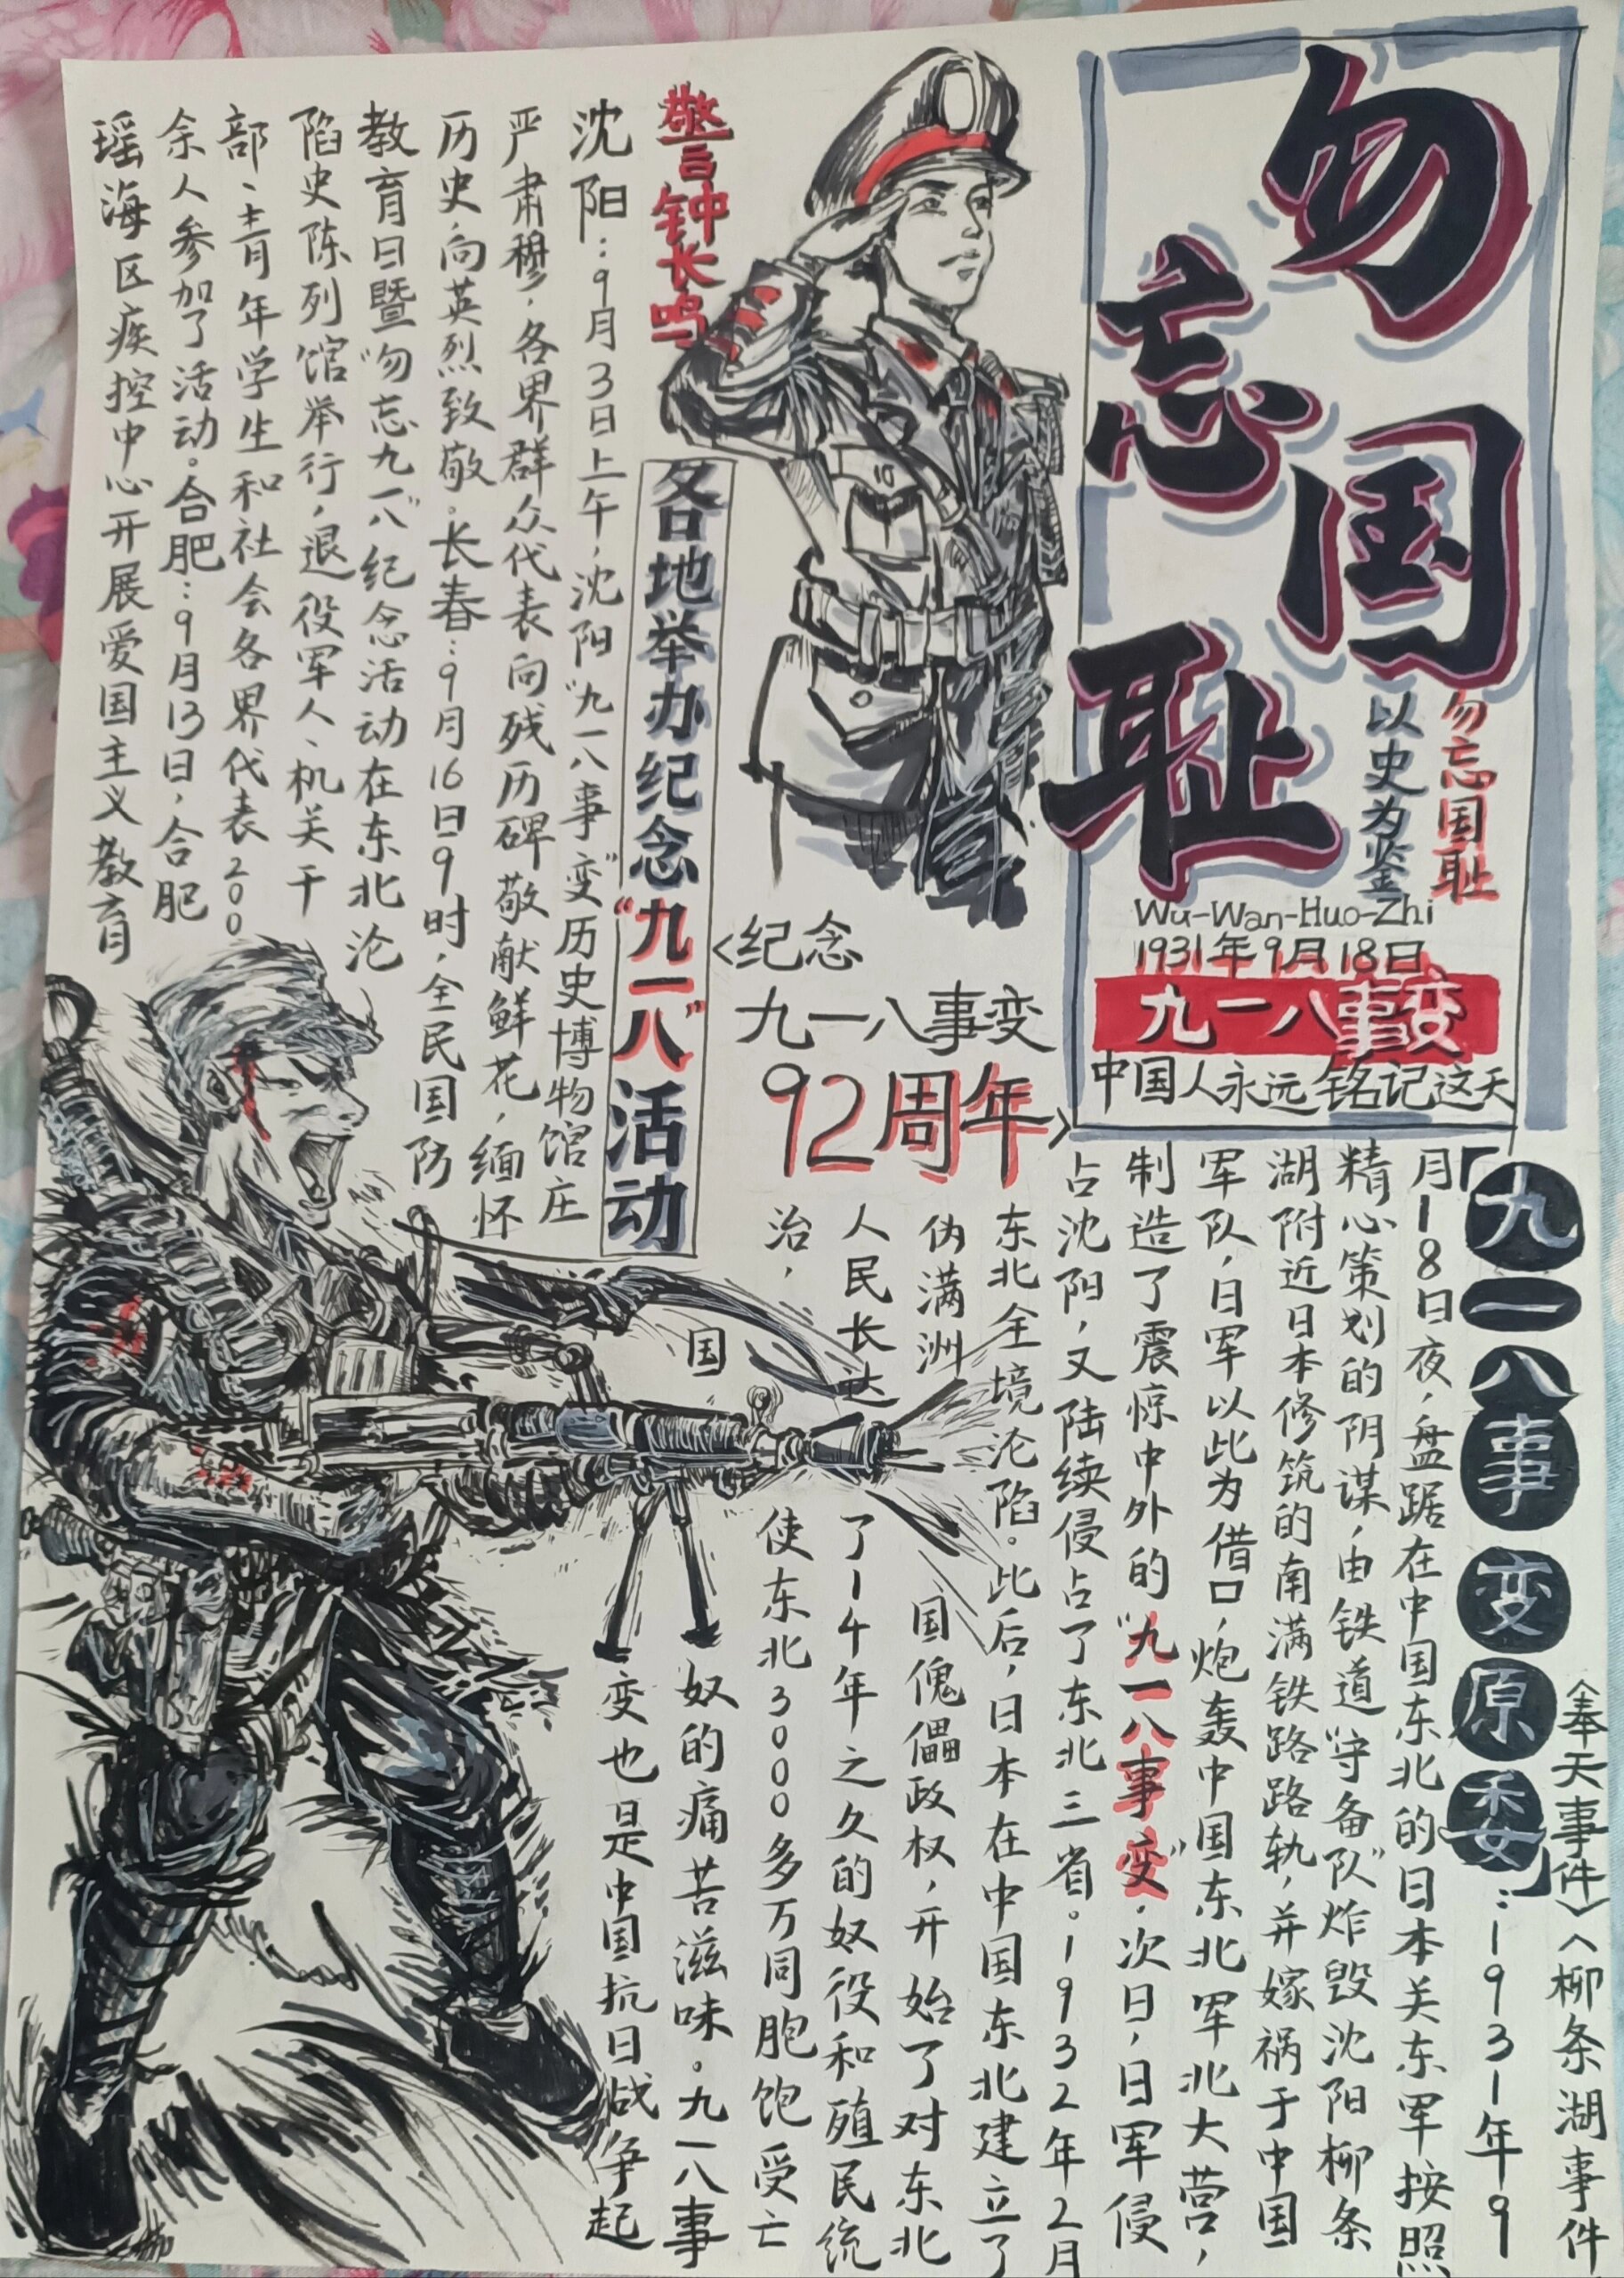 勿忘国耻
勿忘国耻
以史为鉴
Wu-Wan-Huo-Zhi
1931年9月18日
九一八事变
中国人永远铭记这天
〈奉天事件〉〈柳条湖事件
「九一八事变原委」:1931年9
月18日夜,盘踞在中国东北的日本关东军按照
精心策划的阴谋,由铁道“守备队”炸毁沈阳柳条
湖附近日本修筑的南满铁路路轨,并嫁祸于中国
军队,日军以此为借口,炮轰中国东北军北大营,
制造了震惊中外的“九一八事变”,次日,日军侵
占沈阳,又陆续侵占了东北三省。1932年2月
东北全境沦陷。此后,日本在中国东北建立了
伪满洲国傀儡政权,开始了对东北
人民长达了14年之久的奴役和殖民统
治,使东北3000多万同胞饱受亡
国奴的痛苦滋味。九一八事
变也是中国抗日战争起
<纪念
九一八事变
92周年>
警钟长鸣
各地举办纪念“九一八”活动
沈阳:9月3日上午,沈阳“九一八事变”历史博物馆庄
严肃穆,各界群众代表向残历碑敬献鲜花,缅怀
历史,向英烈致敬。长春:9月16日9时,全民国防
教育日暨“勿忘九一八”纪念活动在东北沦
陷史陈列馆举行,退役军人、机关干
部、青年学生和社会各界代表200
余人参加了活动。合肥:9月13日,合肥
瑶海区疾控中心开展爱国主义教育